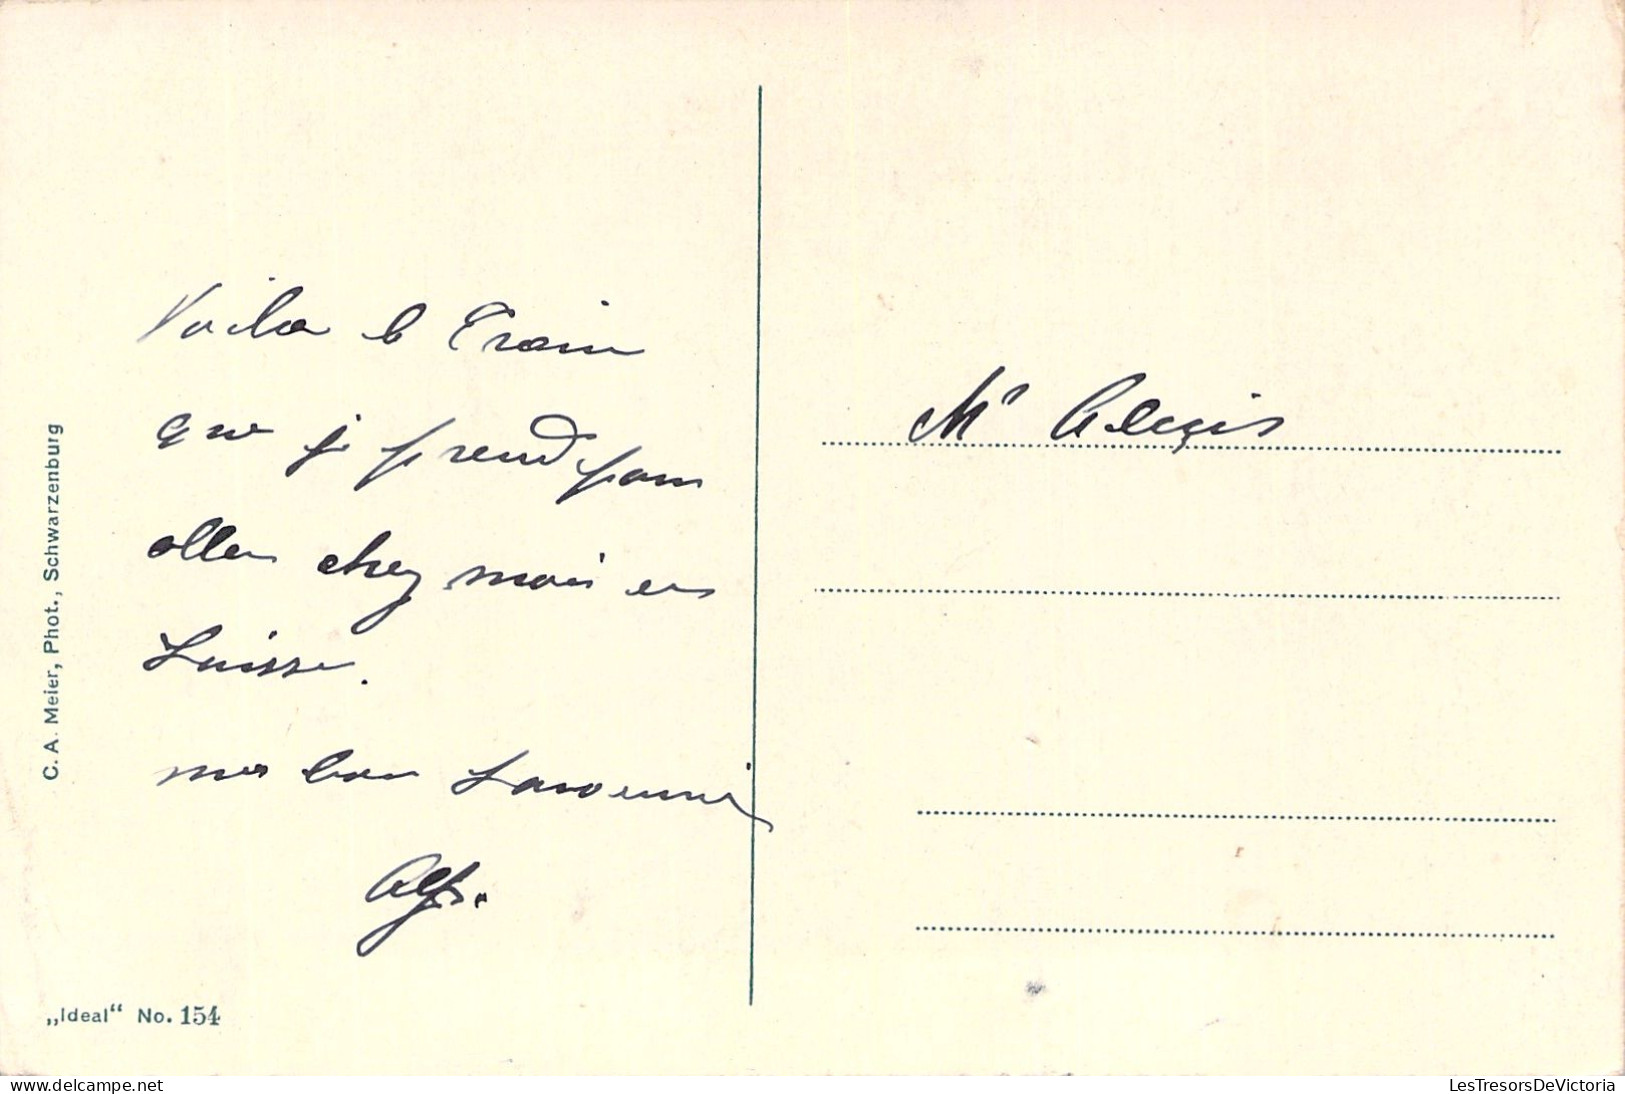 Voila le Train
que je prend pour
aller chez moi en
Suisse.
mes bon Souvenir
Alf.
Mr Alexis
C. A. Meier, Phot., Schwarzenburg
„Ideal“ No. 154
delcampe.net
LesTresorsDeVictoria